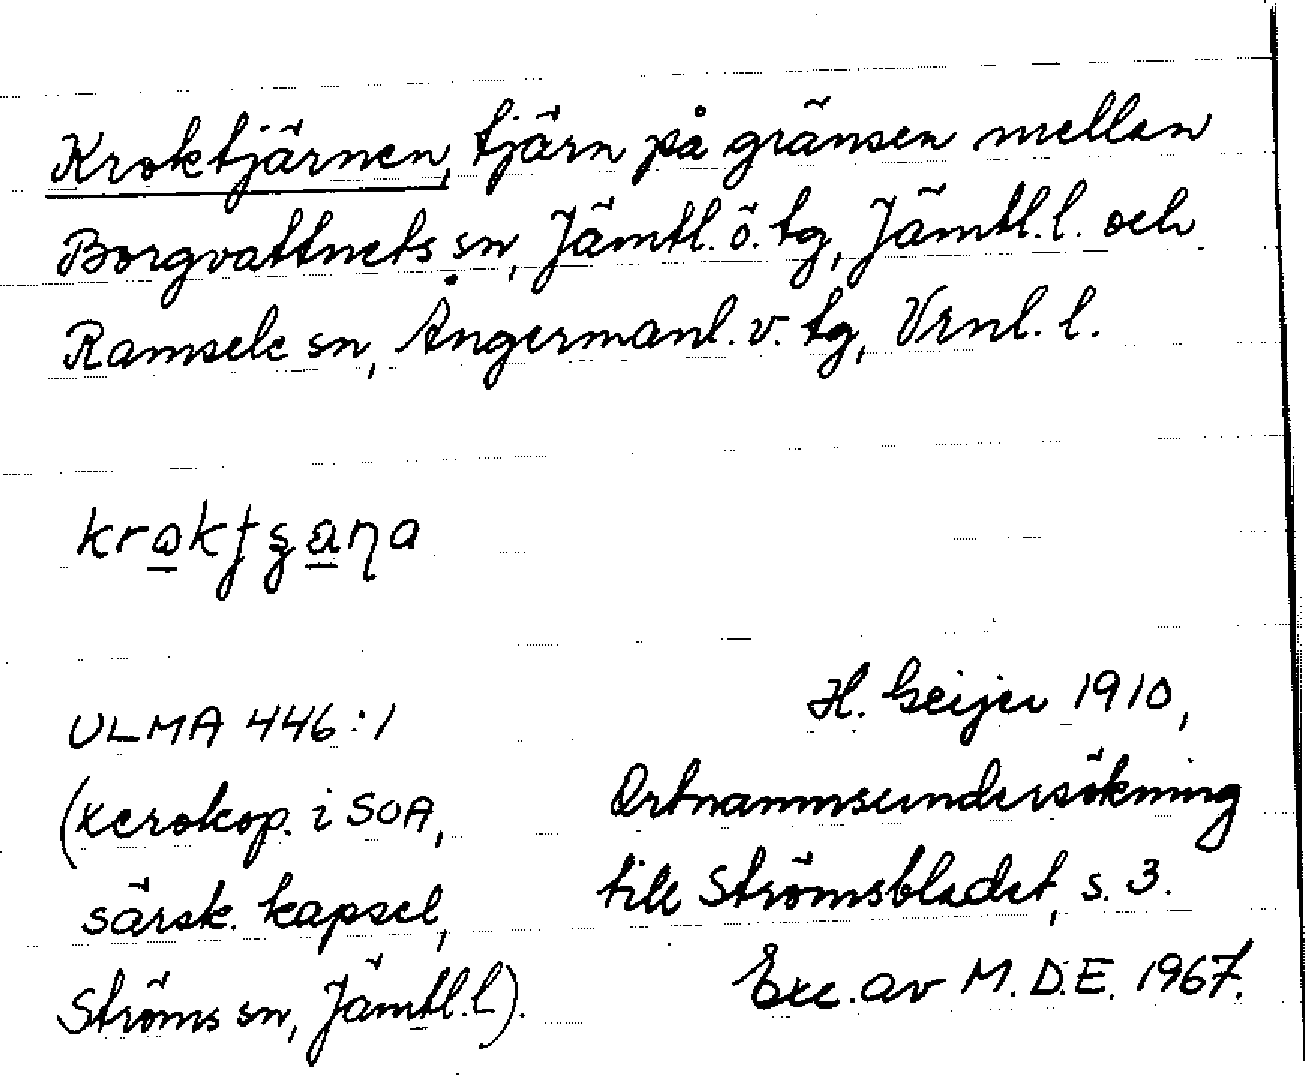 Kroktjärnen, tjärn på gränsen mellan
Borgvattnets sn, Jämtl. ö. tg, Jämtl. l. och
Ramsele sn, Ångermanl. v. tg, Vrnl. l.
ULMA 446:1
(xerokop. i SOA,
särsk. kapsel,
Ströms sn, Jämtl. l).
H. Geijer 1910,
Ortnamnsundersökning
till Strömsbladet, s. 3.
Exc. av M.D.E. 1967.